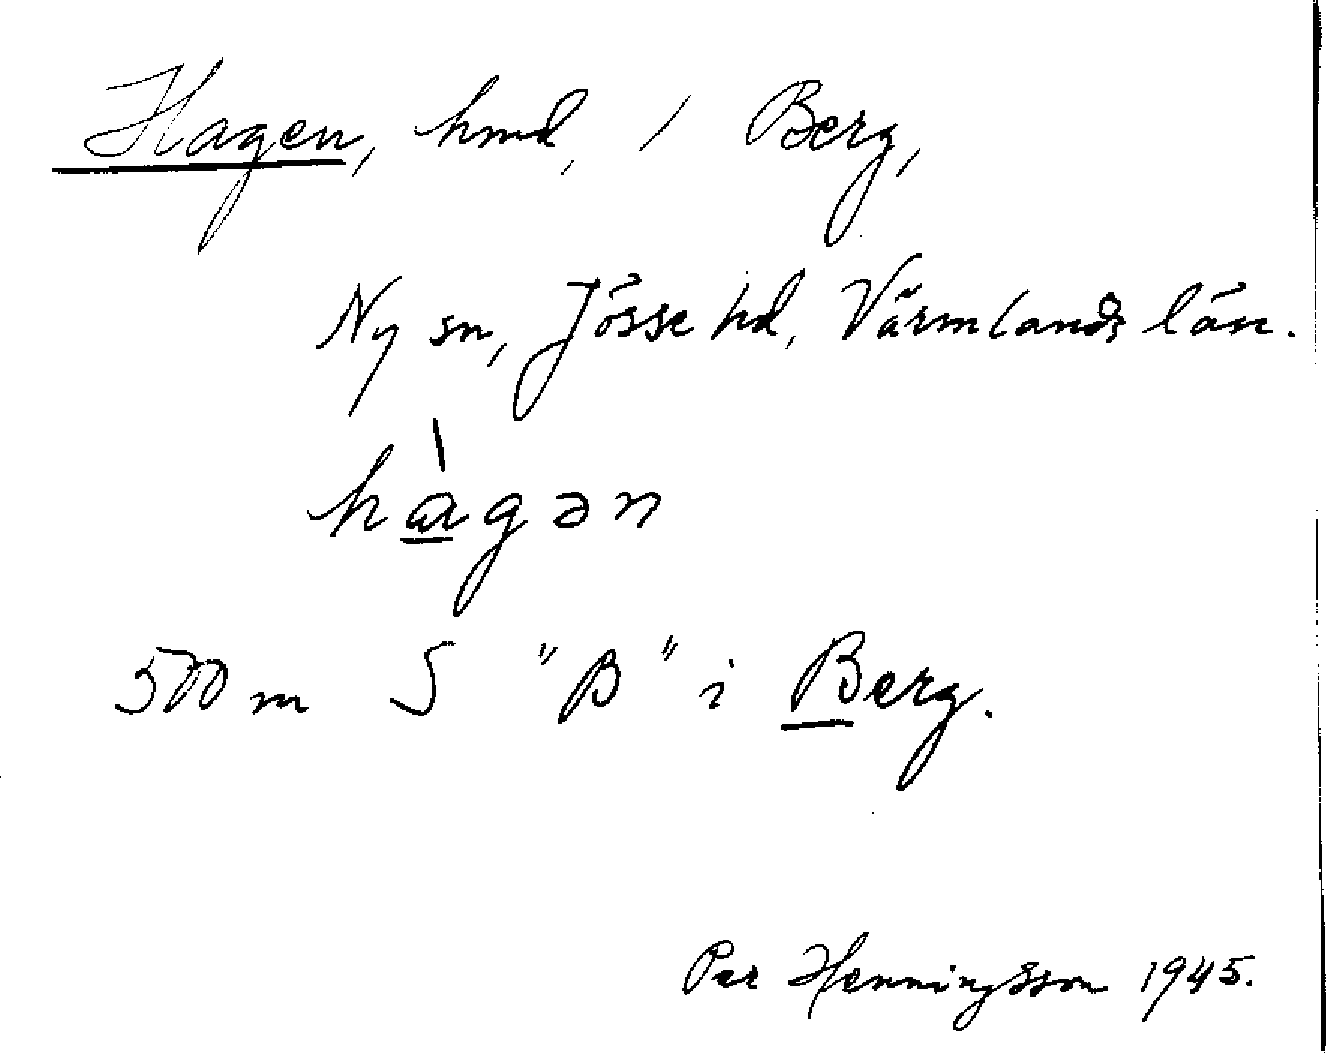 Hagen, hmd, / Berg,
Ny sn, Jösse hd, Värmlands län.
hàgən
500 m S "B" i Berg.
Per Henningsson 1945.